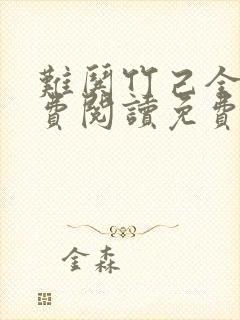 難開竹己全
費閱讀免費
金森